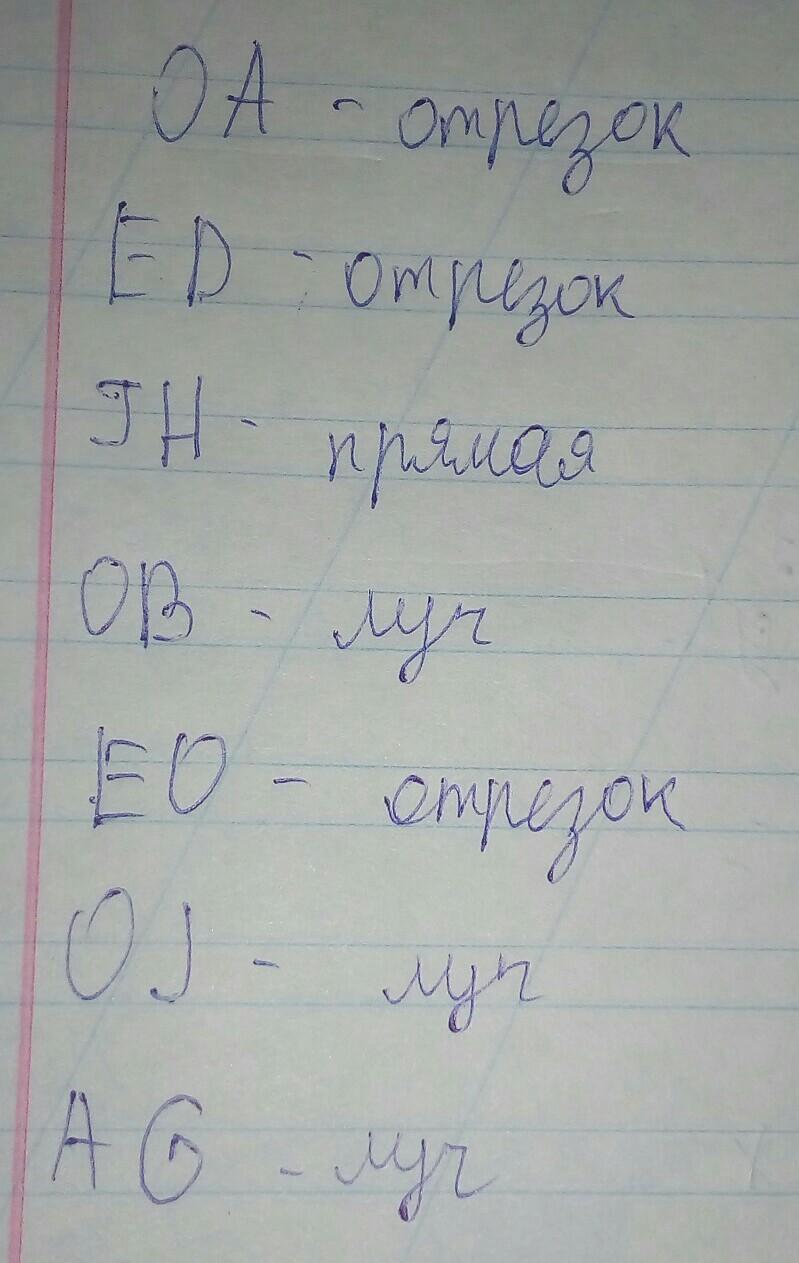 OA - отрезок
ED - отрезок
JH - прямая
OB - луч
EO - отрезок
OJ - луч
AG - луч